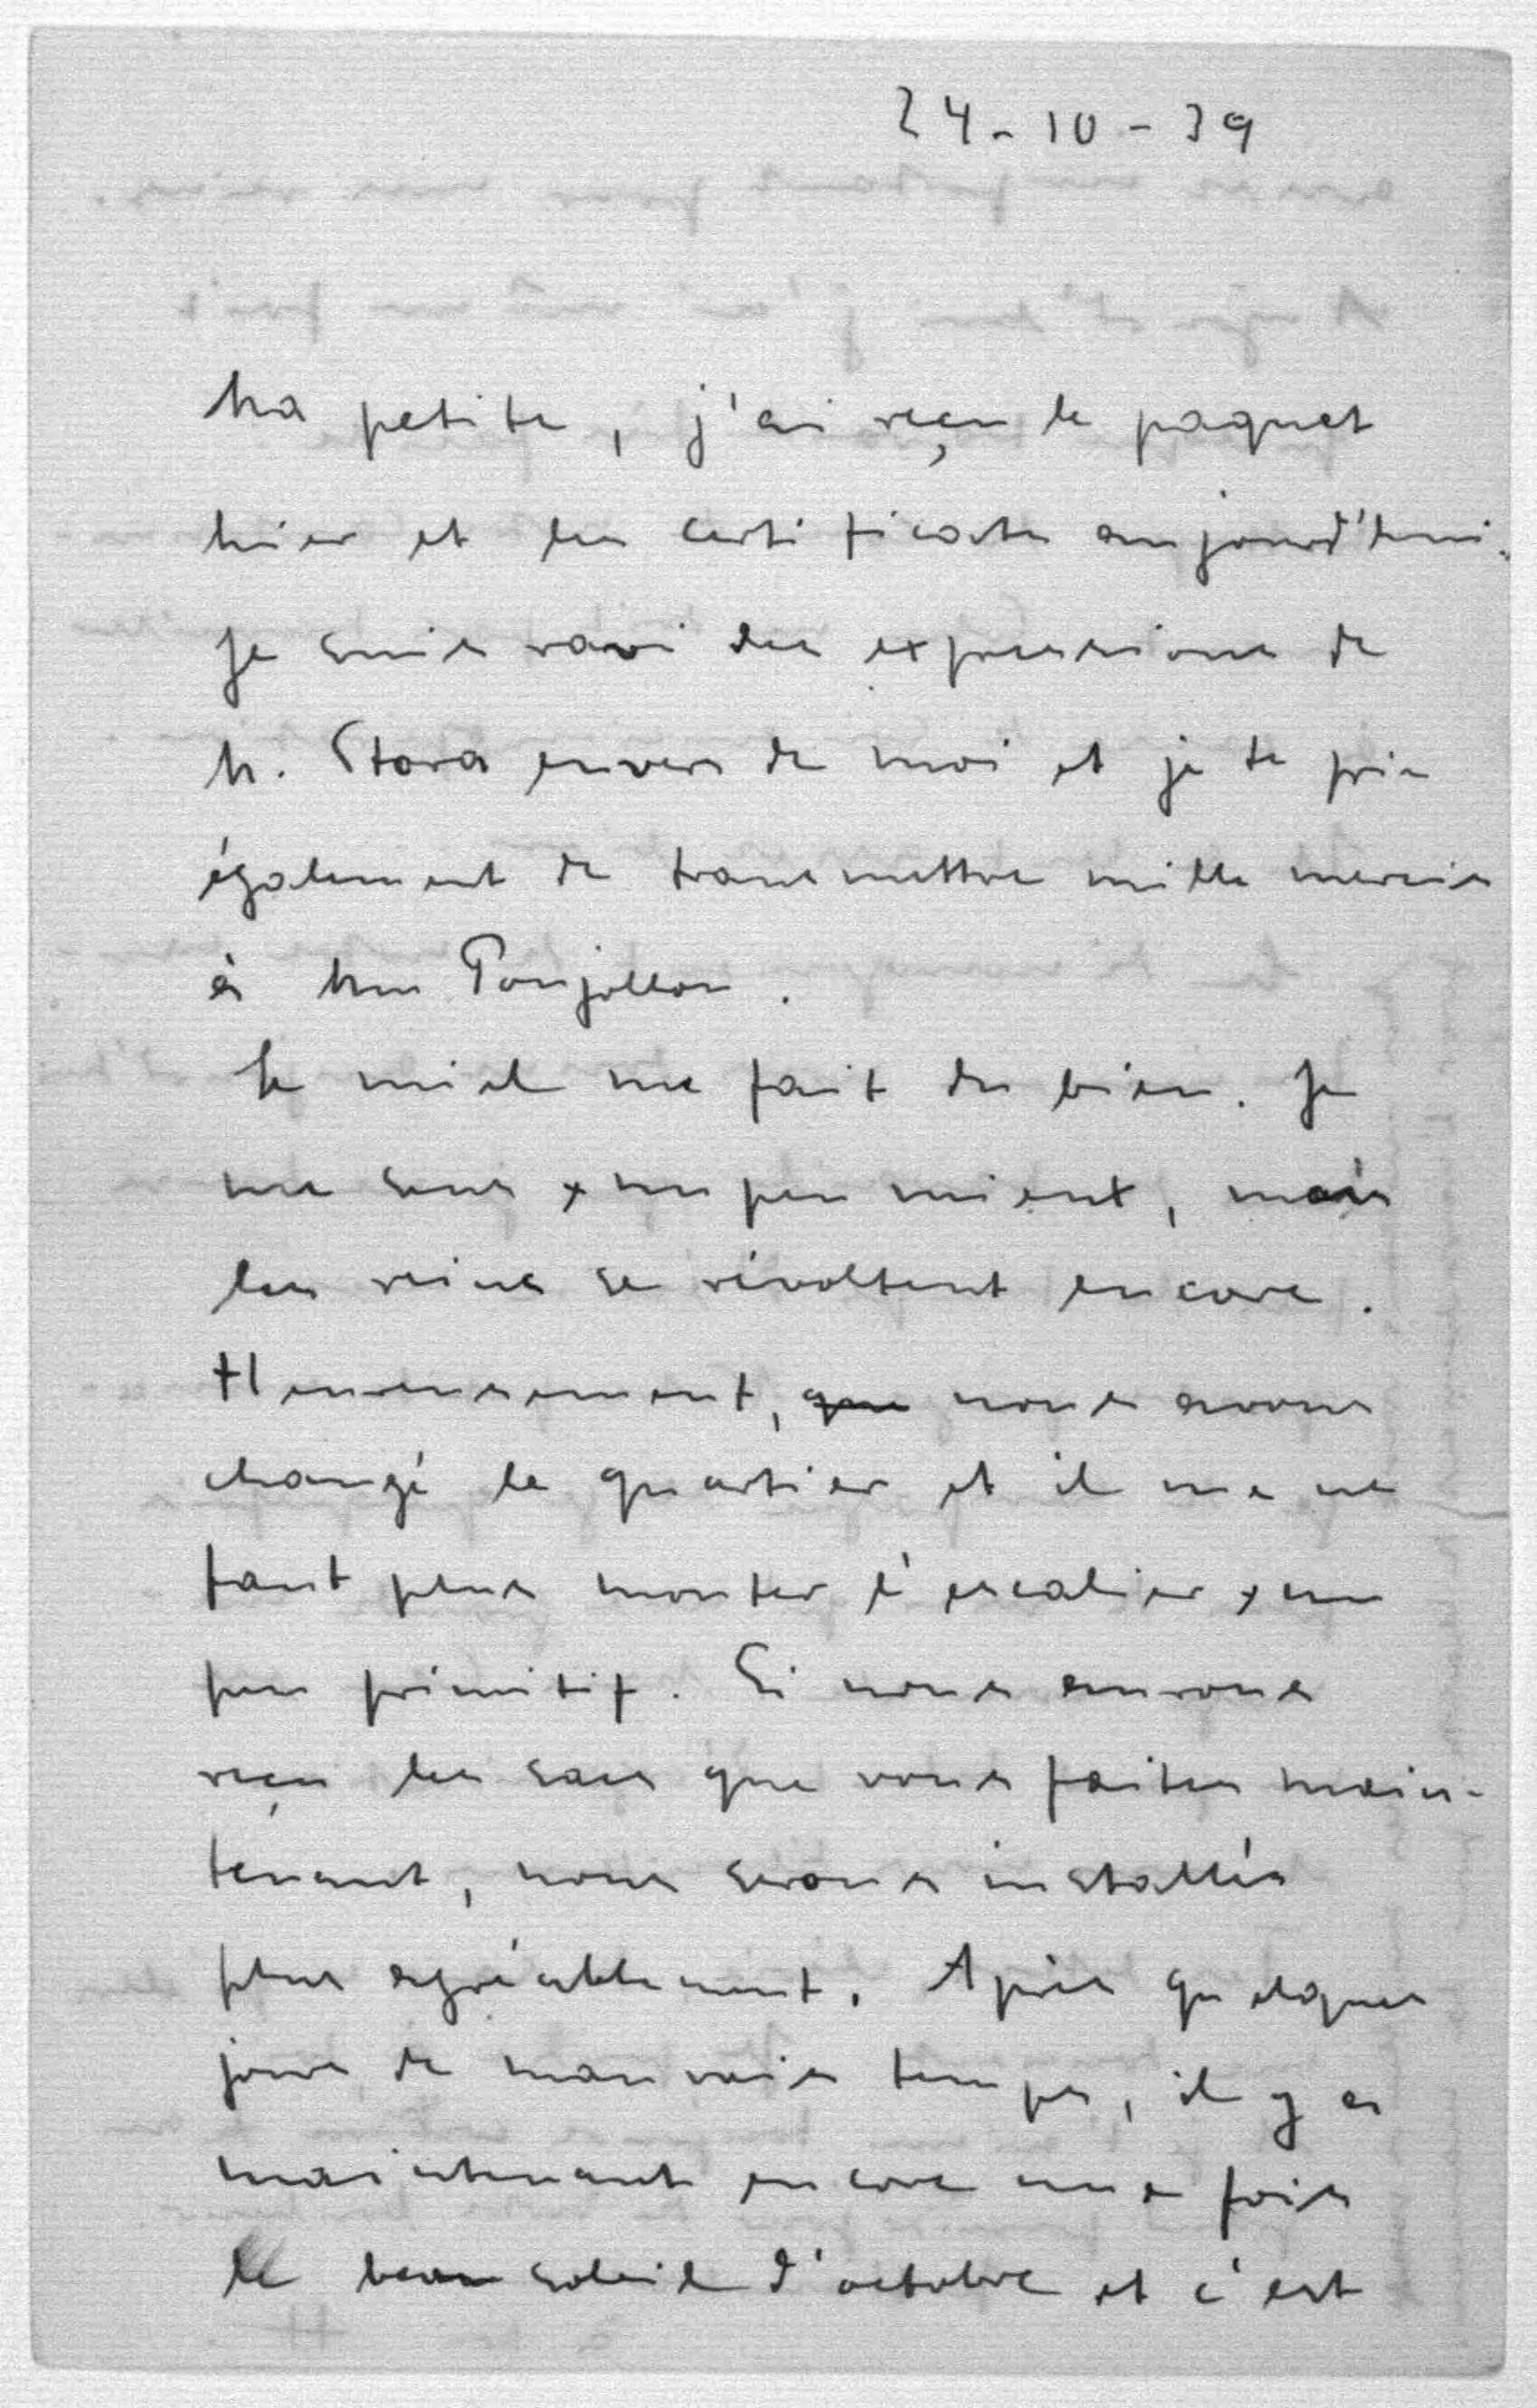 24-10-39
Ma petite, j'ai reçu le paquet
hier et les certificats aujourd'hui.
Je suis ravi des expressions de
M. Stora envers de moi et je te prie
également de transmettre mille mercis
à Mme Poujollon.
Le miel me fait du bien. Je
me sens un peu mieux, mais
les reins se révoltent encore.
Heureusement, que nous avons
changé le quartier et il me ne
faut plus monter l'escalier un
peu primitif. Si nous aurons
reçu les sacs que vous faites main-
tenant, nous serons installés
plus agréablement. Après quelques
jours de mauvais temps, il y a
maintenant encore une fois
le beau soleil d'octobre et c'est